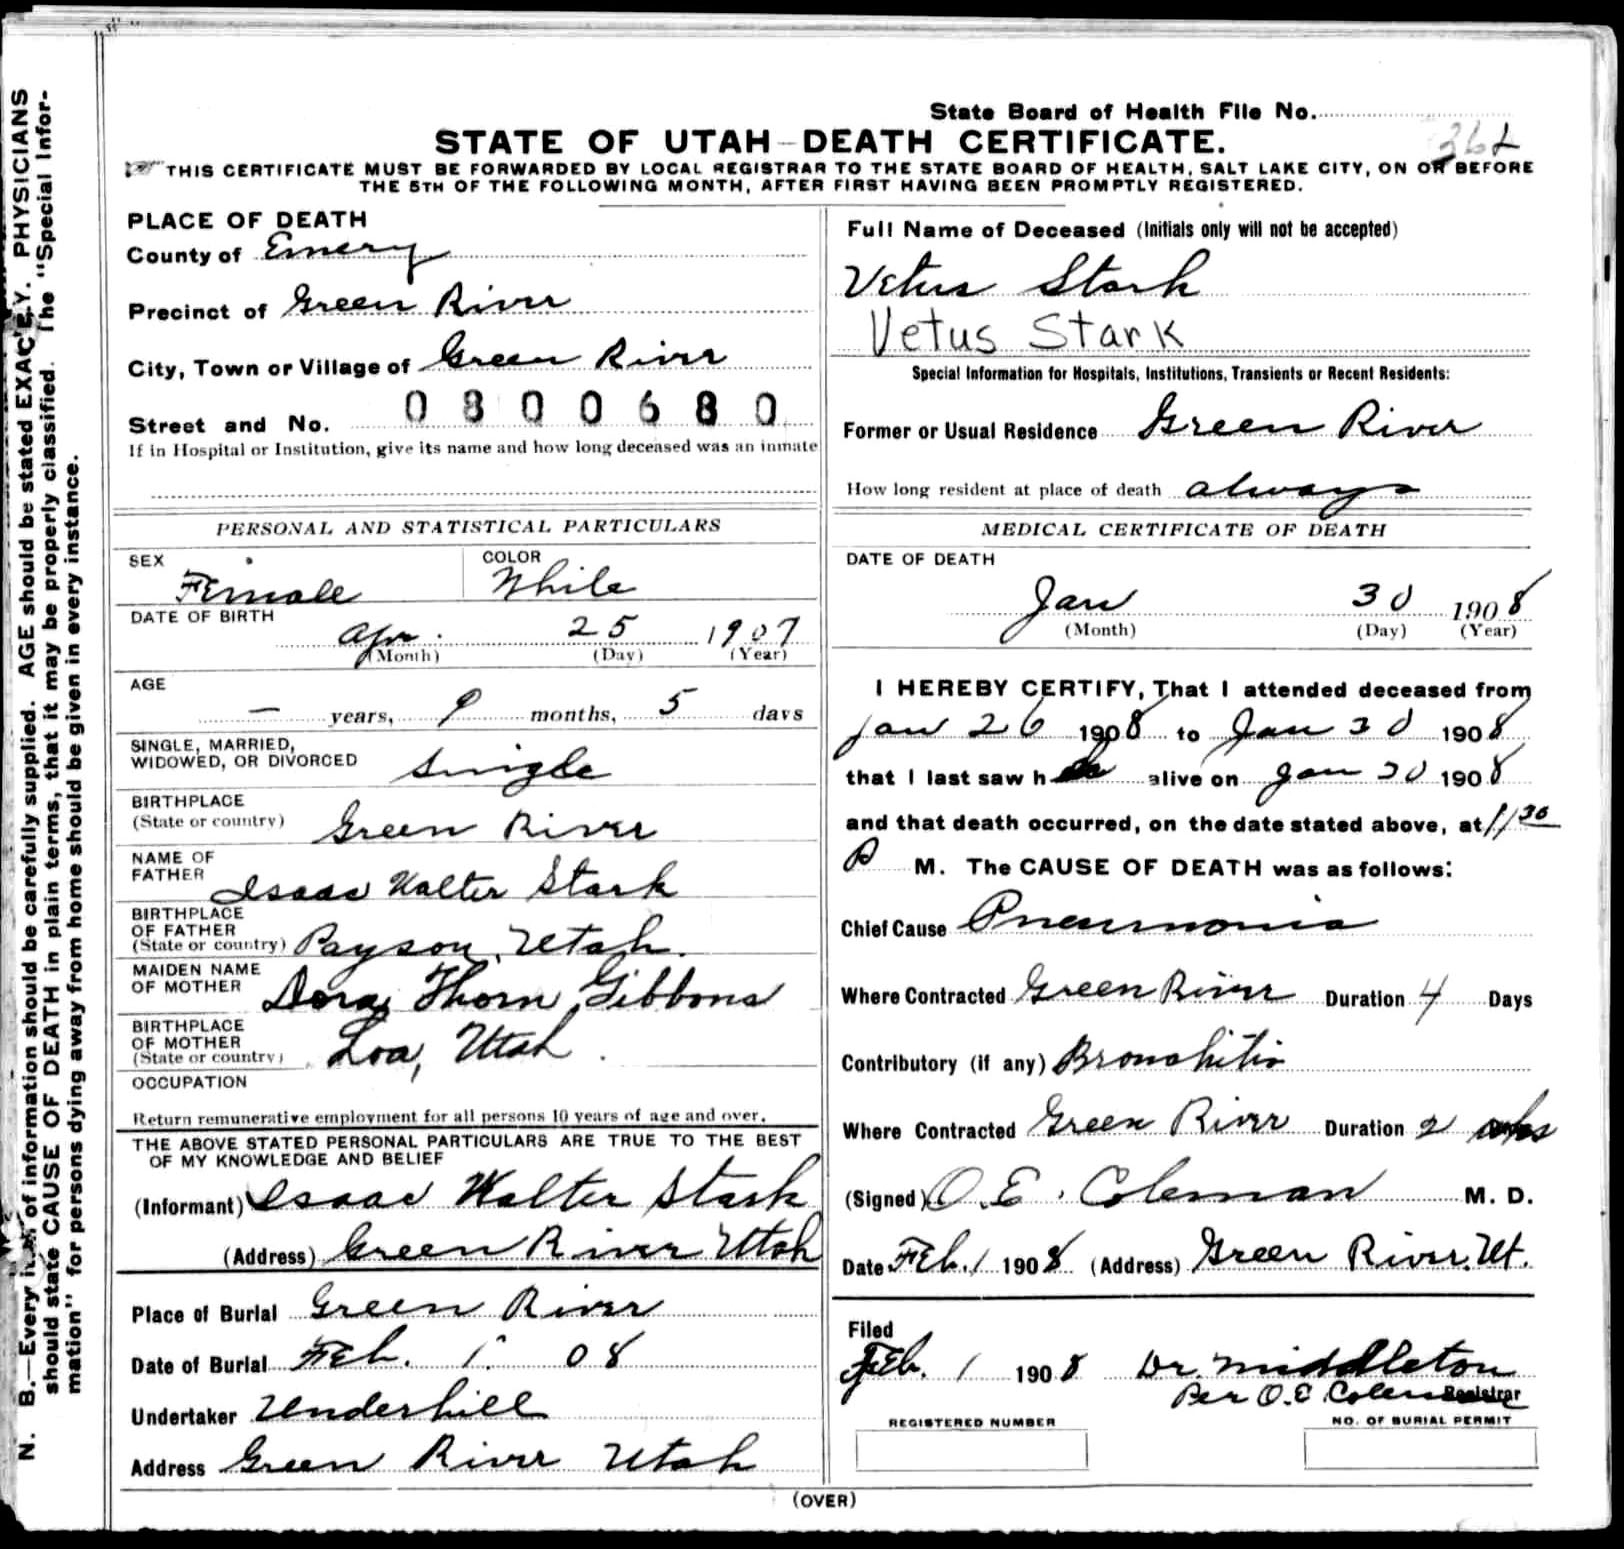 State Board of Health File No.
STATE OF UTAH—DEATH CERTIFICATE.
THIS CERTIFICATE MUST BE FORWARDED BY LOCAL REGISTRAR TO THE STATE BOARD OF HEALTH, SALT LAKE CITY, ON OR BEFORE
THE 5TH OF THE FOLLOWING MONTH, AFTER FIRST HAVING BEEN PROMPTLY REGISTERED.
PLACE OF DEATH
County of Emery
Precinct of Green River
City, Town or Village of Green River
Street and No. 0800680
If in Hospital or Institution, give its name and how long deceased was an inmate
PERSONAL AND STATISTICAL PARTICULARS
SEX Female COLOR White
DATE OF BIRTH
Apr. 25 1907
(Month) (Day) (Year)
AGE
— years, 9 months, 5 days
SINGLE, MARRIED,
WIDOWED, OR DIVORCED Single
BIRTHPLACE
(State or country) Green River
NAME OF
FATHER Isaac Walter Stark
BIRTHPLACE
OF FATHER
(State or country) Payson, Utah.
MAIDEN NAME
OF MOTHER Dora Thorn Gibbons
BIRTHPLACE
OF MOTHER
(State or country) Loa, Utah.
OCCUPATION
Return remunerative employment for all persons 10 years of age and over.
THE ABOVE STATED PERSONAL PARTICULARS ARE TRUE TO THE BEST
OF MY KNOWLEDGE AND BELIEF
(Informant) Isaac Walter Stark
(Address) Green River Utah
Place of Burial Green River
Date of Burial Feb. 1. 08
Undertaker Underhill
Address Green River Utah
Full Name of Deceased (Initials only will not be accepted)
Vetus Stark
Vetus Stark
Special Information for Hospitals, Institutions, Transients or Recent Residents:
Former or Usual Residence Green River
How long resident at place of death always
MEDICAL CERTIFICATE OF DEATH
DATE OF DEATH
Jan 30 1908
(Month) (Day) (Year)
I HEREBY CERTIFY, That I attended deceased from
Jan 26 1908 to Jan 30 1908
that I last saw h alive on Jan 30 1908
and that death occurred, on the date stated above, at 1/30
P M. The CAUSE OF DEATH was as follows:
Chief Cause Pneumonia
Where Contracted Green River Duration 4 Days
Contributory (if any) Bronchitis
Where Contracted Green River Duration 2
(Signed) O. E. Coleman M. D.
Date Feb. 1 1908 (Address) Green River. Ut.
Filed
Feb. 1 1908 Dr. Middleton
Per O. E. Coleman Registrar
REGISTERED NUMBER
NO. OF BURIAL PERMIT
(OVER)
N. B.—Every item of information should be carefully supplied. AGE should be stated EXACTLY. PHYSICIANS
should state CAUSE OF DEATH in plain terms, that it may be properly classified. The "Special Infor-
mation" for persons dying away from home should be given in every instance.